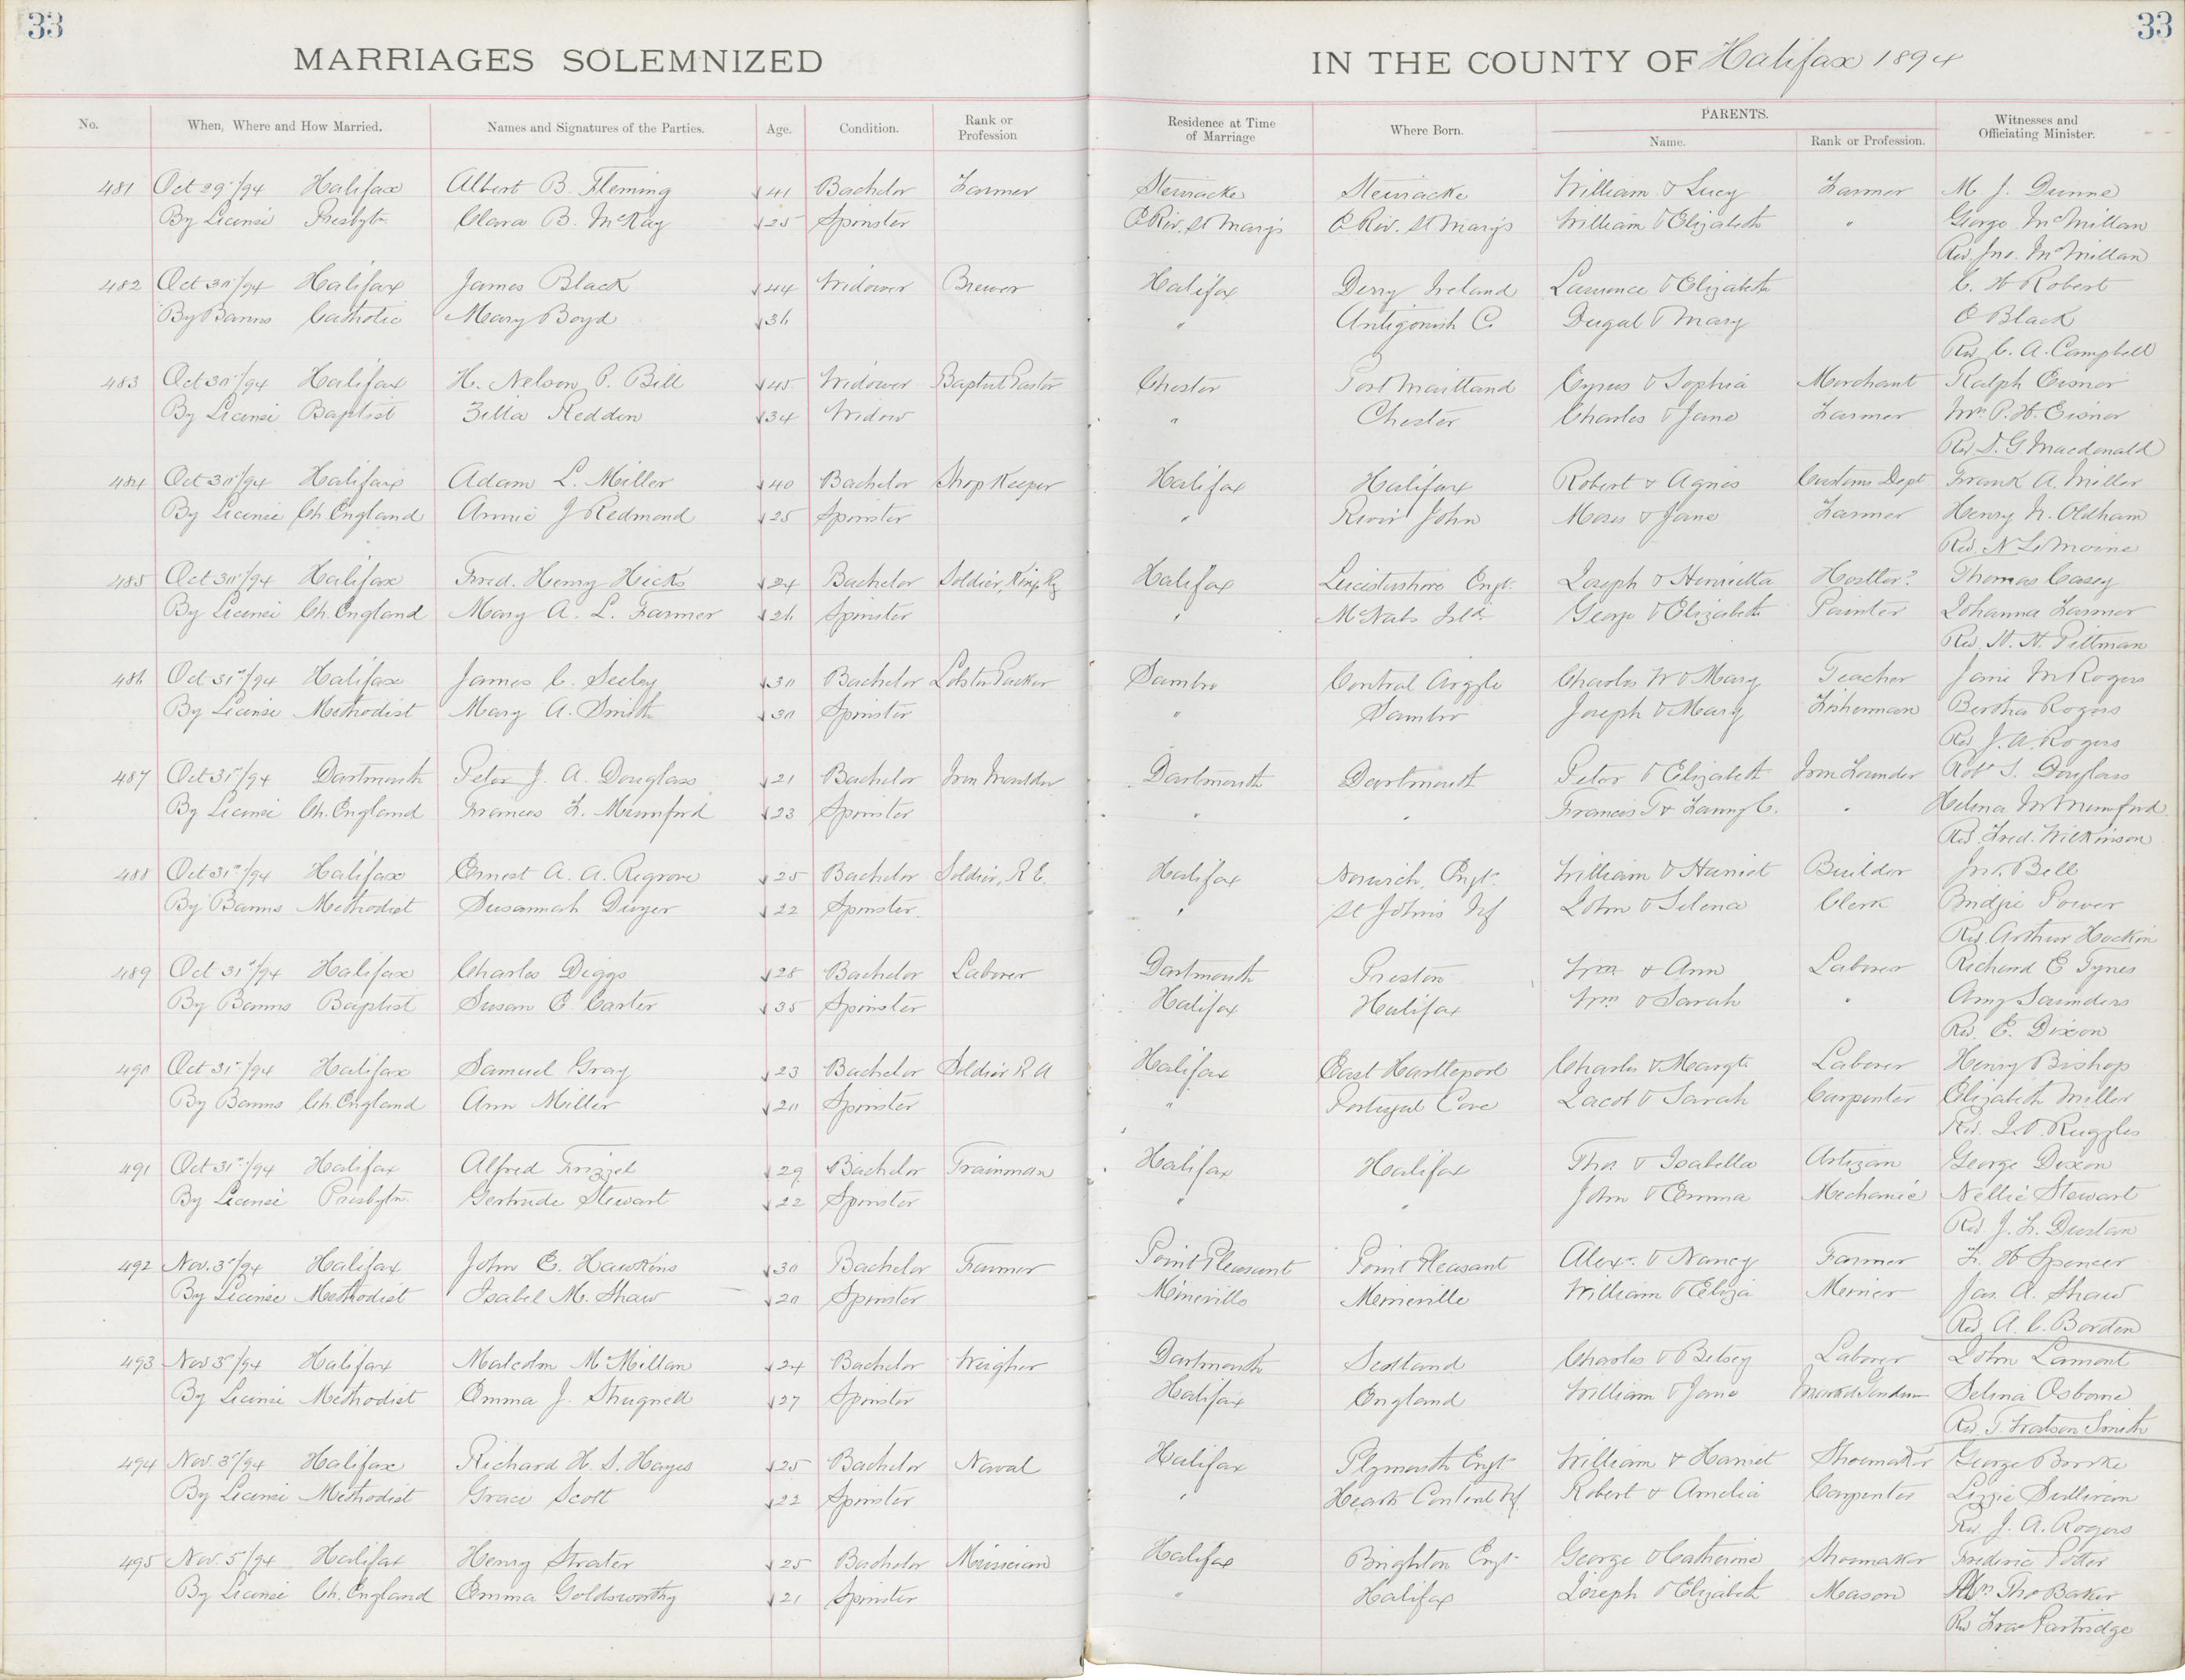 33 33
MARRIAGES SOLEMNIZED IN THE COUNTY OF Halifax 1894
No. When, Where and How Married. Names and Signatures of the Parties. Age. Condition. Rank or Profession Residence at Time of Marriage Where Born. PARENTS. Name. Rank or Profession. Witnesses and Officiating Minister.
481 Oct 29/94 Halifax Albert B. Fleming 41 Bachelor Farmer Stewiacke Stewiacke William & Lucy Farmer M. J. Dunne
By License Presbytn Clara B. McKay 25 Spinster E Riv. St Mary's E Riv. St Mary's William & Elizabeth " George McMillan
Rev. Jno. McMillan
482 Oct 30/94 Halifax James Black 44 Widower Brewer Halifax Derry Ireland Lawrence & Elizabeth C. H Robert
By Banns Catholic Mary Boyd 36 " Antigonish C. Dugal & Mary E Black
Rev C. A. Campbell
483 Oct 30/94 Halifax H. Nelson P. Bill 45 Widower Baptist Pastor Chester Port Maitland Cyrus & Sophia Merchant Ralph Eisnor
By License Baptist Zilla Redden 34 Widow " Chester Charles & Jane Farmer Mrs P. H. Eisnor
Rev D. G. Macdonald
484 Oct 30/94 Halifax Adam L. Miller 40 Bachelor Shop Keeper Halifax Halifax Robert & Agnes Customs Dept Frank A. Miller
By License Ch. England Annie J Redmond 25 Spinster " River John Moses & Jane Farmer Henry N. Oldham
Rev. N LeMoine
485 Oct 30/94 Halifax Fred. Henry Hicks 24 Bachelor Soldier, King's Rg Halifax Leicestershire Engt. Joseph & Henrietta Hostler? Thomas Casey
By License Ch. England Mary A. L. Farmer 26 Spinster " McNabs Isld. George & Elizabeth Painter Johanna Farmer
Rev. H. H. Pittman
486 Oct 31st/94 Halifax James C. Seeley 30 Bachelor Lobster Packer Sambro Central Argyle Charles W & Mary Teacher Janie M Rogers
By License Methodist Mary A. Smith 30 Spinster " Sambro Joseph & Mary Fisherman Bertha Rogers
Rev J. A. Rogers
487 Oct 31st/94 Dartmouth Peter J. A. Douglass 21 Bachelor Iron Moulder Dartmouth Dartmouth Peter & Elizabeth Iron Founder Robt S. Douglass
By License Ch. England Frances F. Mumford 23 Spinster " " Francis T & Fanny C. " Helena M Mumford
Rev. Fred. Wilkinson
488 Oct 31st/94 Halifax Ernest A. A. Regrove 25 Bachelor Soldier, R.E. Halifax Norwich, Engt. William & Harriet Builder Jno. Bell
By Banns Methodist Susannah Dwyer 22 Spinster. " St John's Nf John & Selena Clerk Bridgie Power
Rev. Arthur Hockin
489 Oct 31st/94 Halifax Charles Diggs 28 Bachelor Laborer Dartmouth Preston Wm & Ann Laborer Richard E Tynes
By Banns Baptist Susan E. Carter 35 Spinster Halifax Halifax Wm & Sarah " Amy Saunders
Rev. E. Dixon
490 Oct 31st/94 Halifax Samuel Gray 23 Bachelor Soldier R A Halifax East Hartlepool Charles & Margt Laborer Henry Bishop
By Banns Ch. England Ann Miller 20 Spinster " Portugal Cove Jacob & Sarah Carpenter Elizabeth Miller
Rev. J. O. Ruggles
491 Oct 31st/94 Halifax Alfred Frizzel 29 Bachelor Trainman Halifax Halifax Thos. & Isabella Artizan George Dixon
By License Presbytn. Gertrude Stewart 22 Spinster " " John & Emma Mechanic Nellie Stewart
Rev J. F. Dustan
492 Nov. 3d/94 Halifax John E. Hawkins 30 Bachelor Farmer Point Pleasant Point Pleasant Alexr. & Nancy Farmer F. H Spencer
By License Methodist Isabel M. Shaw 20 Spinster Mineville Mineville William & Eliza Meiner Jas. A. Shaw
Rev A. C. Borden
493 Nov 3d/94 Halifax Malcolm McMillan 24 Bachelor Weigher Dartmouth Scotland Charles & Betsey Laborer John Lamont
By License Methodist Emma J. Shugnell 27 Spinster Halifax England William & Jane Market Gardener Selina Osborne
Rev. T. Watson Smith
494 Nov. 3d/94 Halifax Richard H. S. Hayes 25 Bachelor Naval Halifax Plymouth Engt William & Harriet Shoemaker George Bourke
By License Methodist Grace Scott 22 Spinster " Hearts Content Nf. Robert & Amelia Carpenter Lizzie Sullivan
Rev. J. A. Rogers
495 Nov. 5/94 Halifax Henry Strater 25 Bachelor Musician Halifax Brighton Engt. George & Catherine Shoemaker Frederic Potter
By License Ch. England Emma Goldsworthy 21 Spinster " Halifax Joseph & Elizabeth Mason Mrs Thos Baker
Rev Fras Partridge